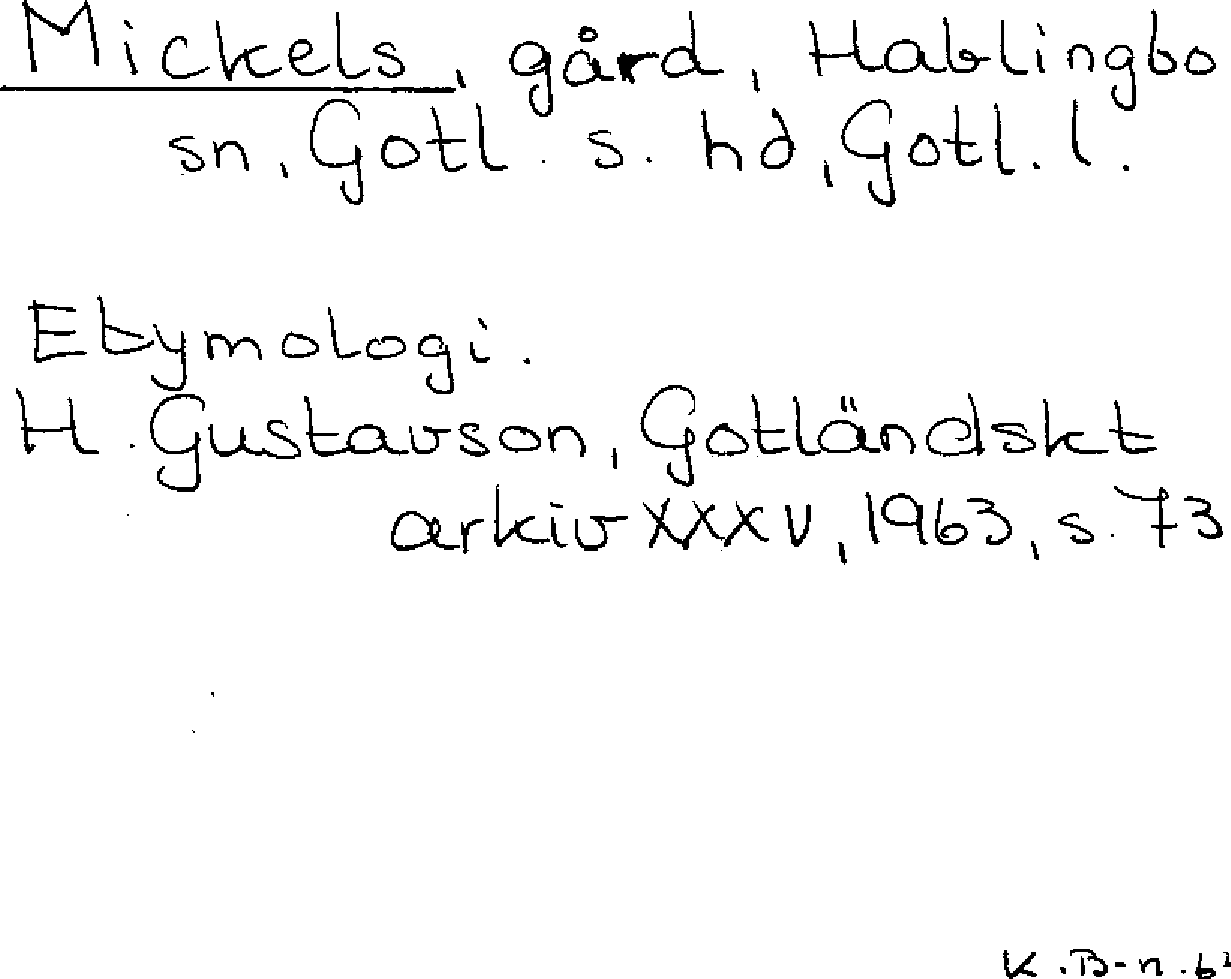 Mickels, gård, Hablingbo
sn, Gotl. s. hd, Gotl. l.
Etymologi.
H. Gustavson, Gotländskt
arkiv XXXV, 1963, s. 73
K. B-n.